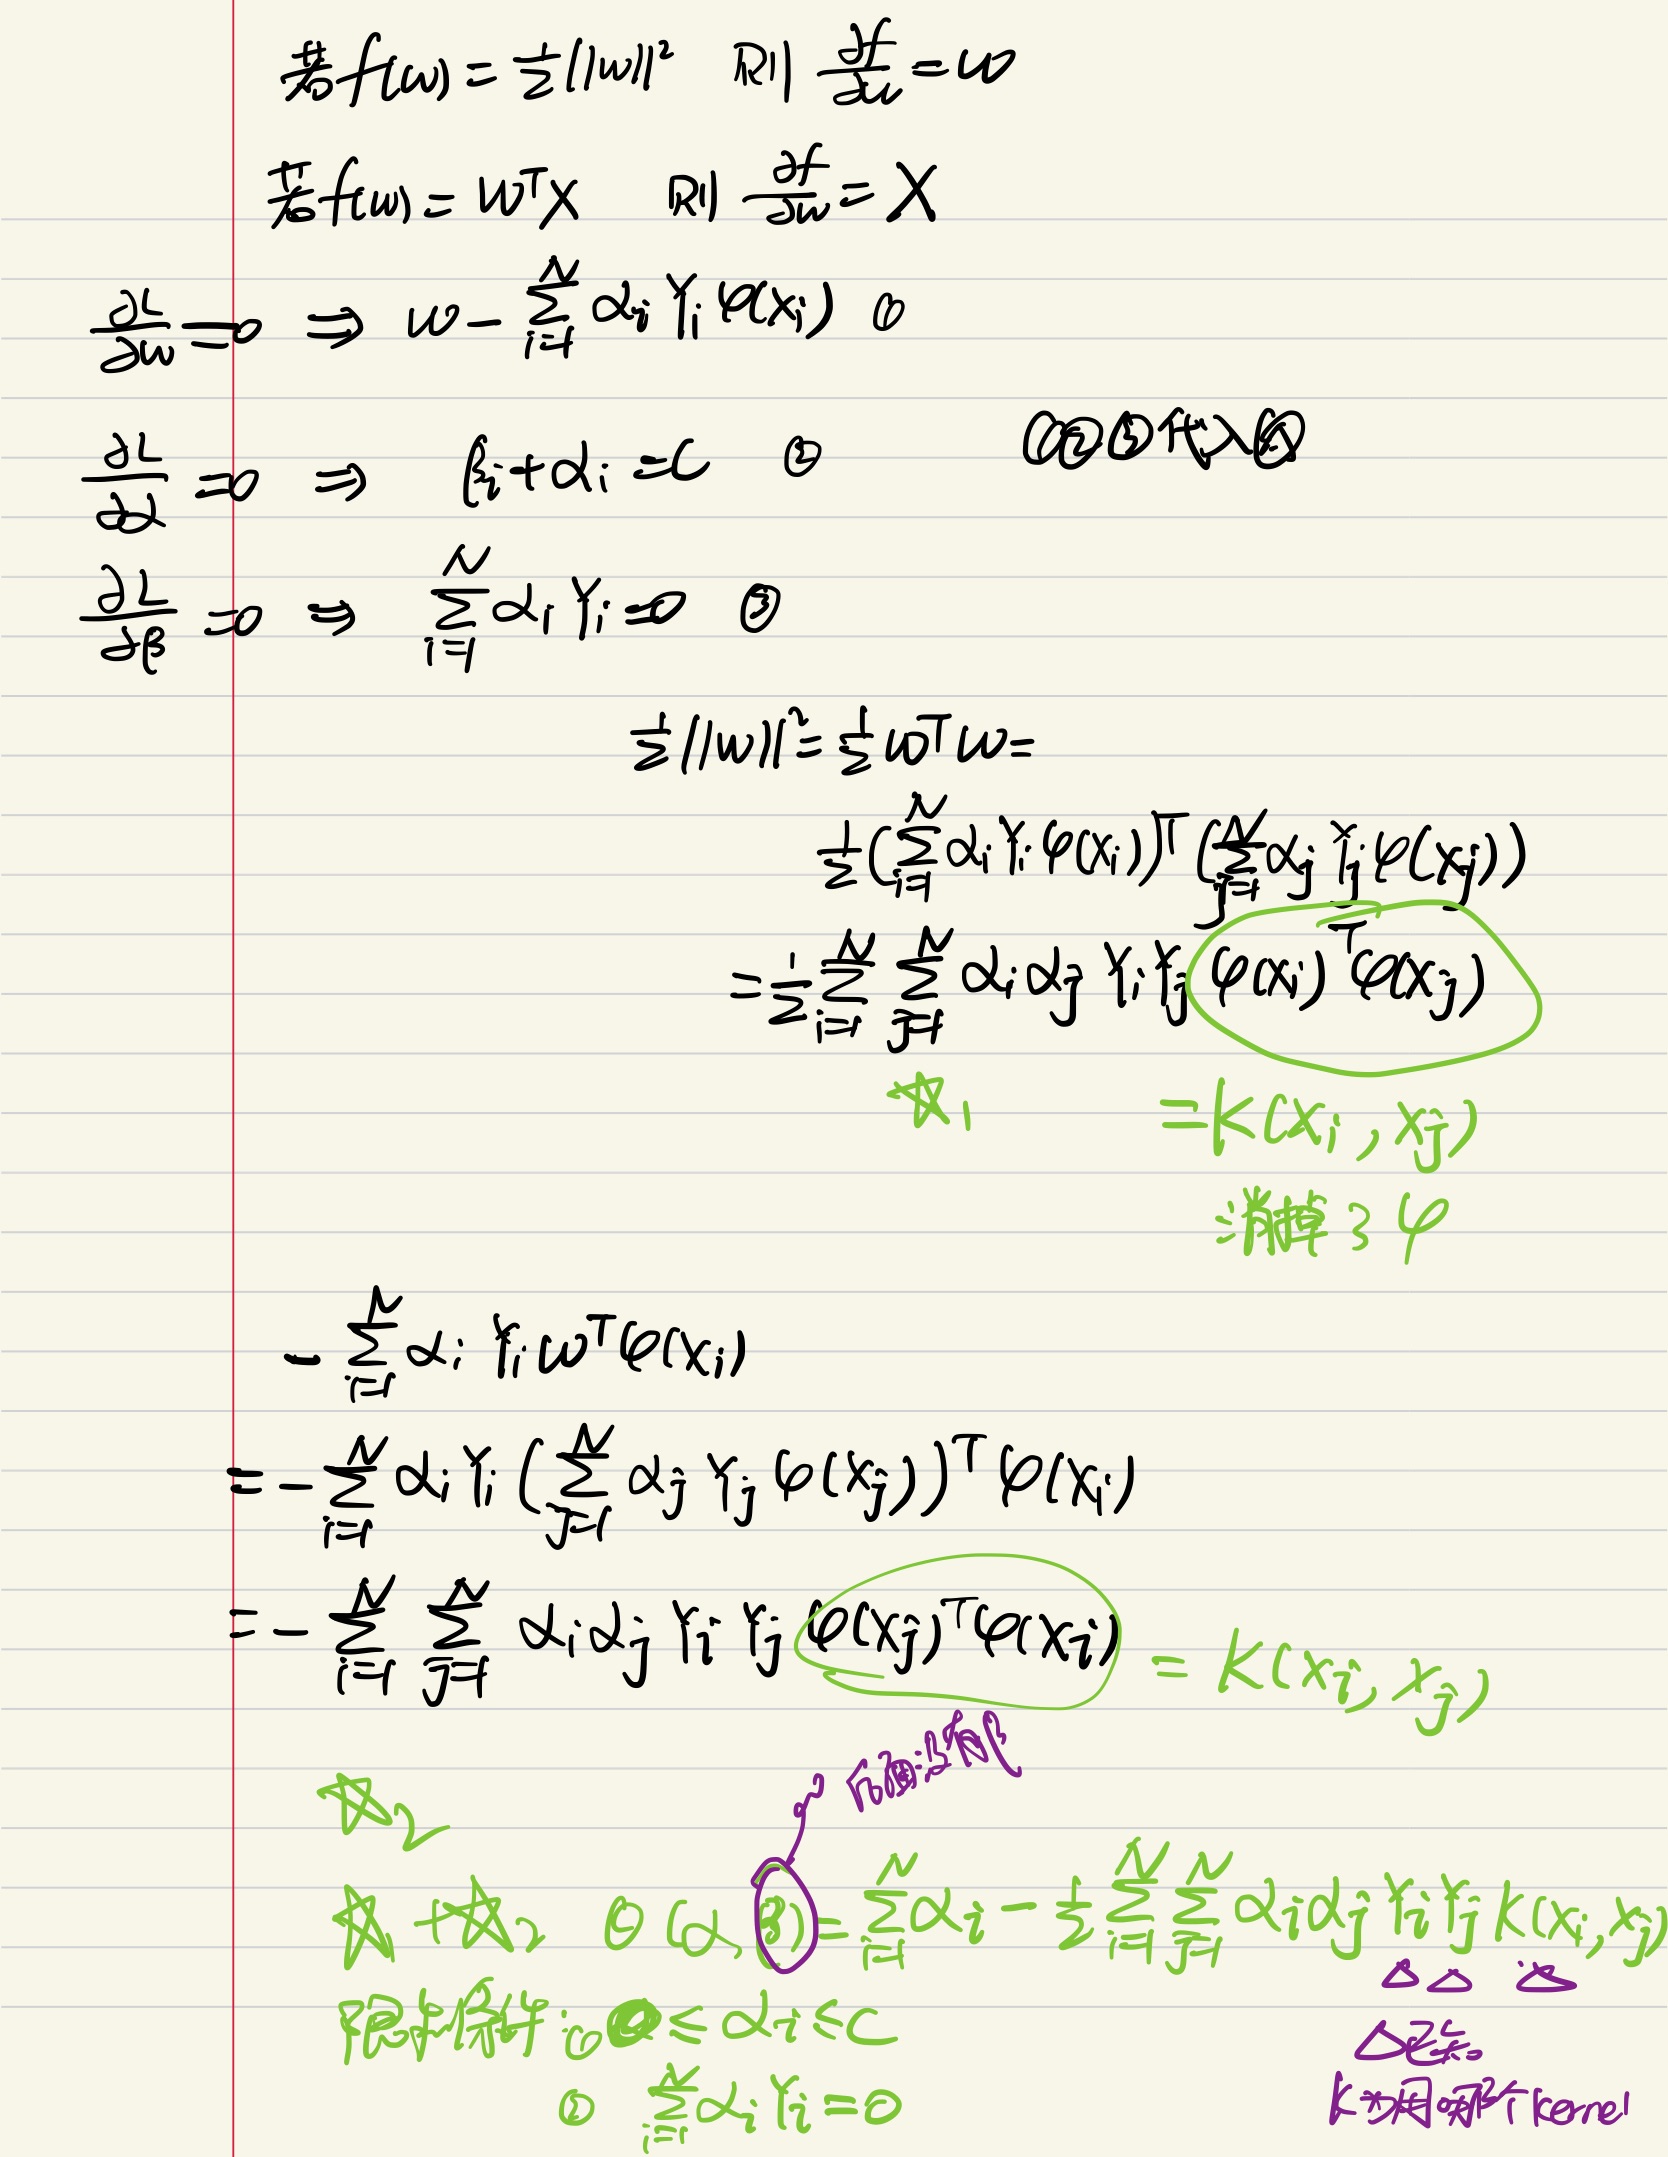 若 f(w) = 1/2 ||w||² 则 ∂f/∂w = w
若 f(w) = WᵀX 则 ∂f/∂w = X
∂L/∂w = 0 ⇒ w - ∑_{i=1}^{N} αi Yi φ(xi) ①
∂L/∂α = 0 ⇒ βi + αi = C ②
①②③代入
∂L/∂β = 0 ⇒ ∑_{i=1}^{N} αi Yi = 0 ③
1/2 ||w||² = 1/2 wᵀw =
1/2 (∑_{i=1}^{N} αi Yi φ(xi))ᵀ (∑_{j=1}^{N} αj Yj φ(xj))
= 1/2 ∑_{i=1}^{N} ∑_{j=1}^{N} αi αj Yi Yj φ(xi)ᵀ φ(xj)
☆1 = K(xi, xj)
消掉了 φ
- ∑_{i=1}^{N} αi Yi wᵀ φ(xi)
= - ∑_{i=1}^{N} αi Yi (∑_{j=1}^{N} αj Yj φ(xj))ᵀ φ(xi)
= - ∑_{i=1}^{N} ∑_{j=1}^{N} αi αj Yi Yj φ(xj)ᵀ φ(xi) = K(xi, xj)
后面没有β
☆2
☆1 + ☆2 θ(α, β) = ∑_{i=1}^{N} αi - 1/2 ∑_{i=1}^{N} ∑_{j=1}^{N} αi αj Yi Yj K(xi, xj)
△ △ △
限制条件: ① 0 ≤ αi ≤ C
△已知
② ∑_{i=1}^{N} αi Yi = 0
K为用哪个kernel